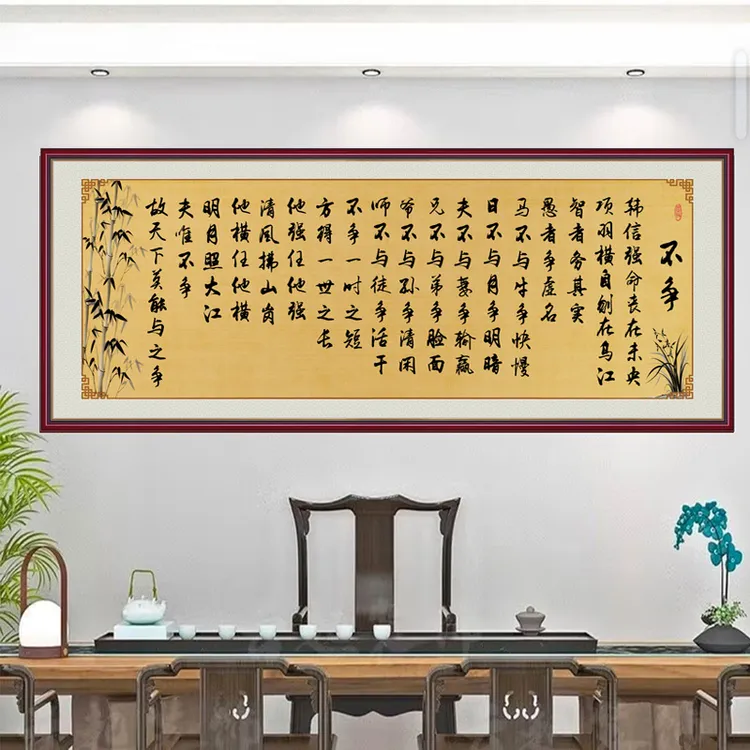 不争
韩信强命丧在未央
项羽横自刎在乌江
智者务其实
愚者争虚名
马不与牛争快慢
日不与月争明暗
夫不与妻争输赢
兄不与弟争脸面
爷不与孙争清闲
师不与徒争活干
不争一时之短
方得一世之长
他强任他强
清风拂山岗
他横任他横
明月照大江
夫唯不争
故天下莫能与之争